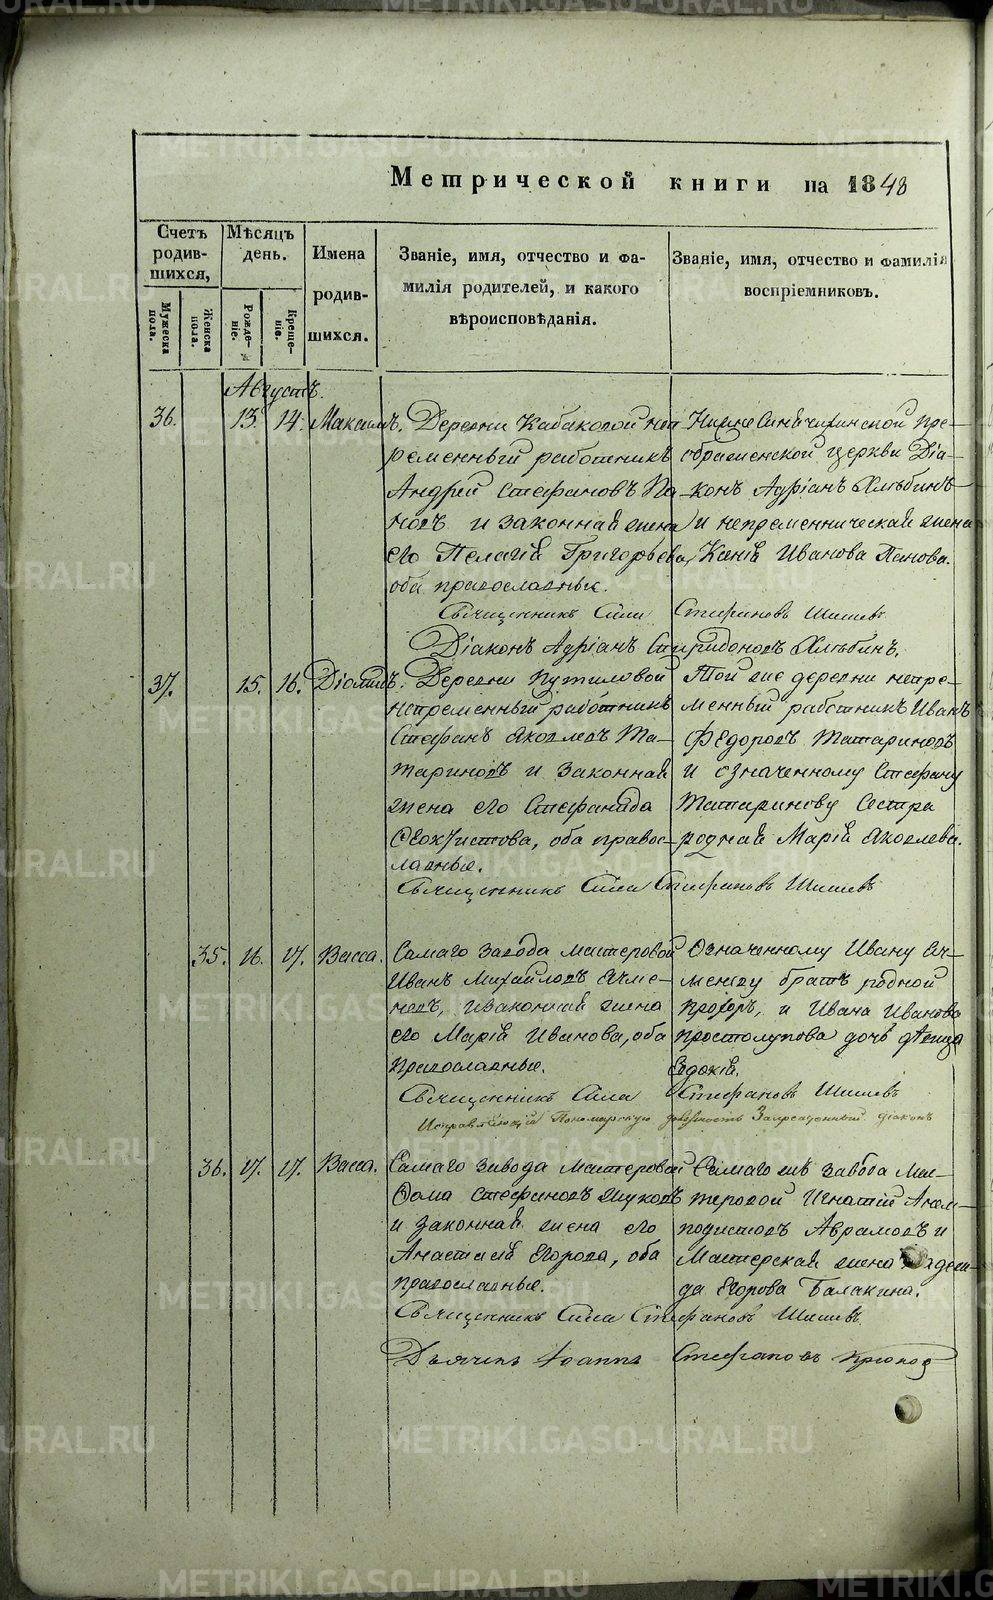 Метрической книги на 1848
Счетъ родив-шихся,
Мѣсяцъ день.
Имена родив-шихся.
Званіе, имя, отчество и фа-
милія родителей, и какого
вѣроисповѣданія.
Званіе, имя, отчество и фамилія
воспріемниковъ.
Мужеска пола.
Женска пола.
Рожде-ніе.
Креще-ніе.
Августъ.
36. 13. 14. Максимъ.
Деревни Кабаковой неп
ременный работникъ
Андрей Стефановъ Па
новъ и законная жена
его Пелагія Григорьева,
оба православные.
Нижне Синячихинской Пре-
ображенской церкви Діа-
конъ Адріанъ Хлѣбинъ
и непременническая жена
Ксенія Иванова Панова.
Священникъ Сила Стефановъ Шишевъ
Діаконъ Адріанъ Спиридоновъ Хлѣбинъ.
37. 15. 16. Діомидъ.
Деревни Путиловой
непременный работникъ
Стефанъ Яковлевъ Та-
тариновъ и законная
жена его Стефанида
Феоктистова, оба правос-
лавные.
Той же деревни непре-
менный работникъ Иванъ
Федоровъ Татариновъ
и означенному Стефану
Татаринову сестра
родная Марія Яковлева.
Священникъ Сила Стефановъ Шишевъ
35. 16. 17. Васса.
Самаго завода мастеровой
Иванъ Михайловъ Ячме-
невъ, и законная жена
его Марія Иванова, оба
православные.
Означенному Ивану Яч-
меневу братъ родной
Прохоръ, и Ивана Иванова
Простолупова дочь дѣвица
Евдокія.
Священникъ Сила Стефановъ Шишевъ
Исправляющій Пономарскую должность Запрещенный діаконъ
36. 17. 17. Васса.
Самаго завода мастеровой
Фома Стефановъ Жуковъ
и законная жена его
Анастасія Егорова, оба
православные.
Самаго же завода мас-
теровой Игнатій Анем-
подистовъ Аврамовъ и
Мастерская жена Надеж-
да Егорова Балакина.
Священникъ Сила Стефановъ Шишевъ.
Дьячекъ Іоаннъ Стефановъ Крюков
METRIKI.GASO-URAL.RU